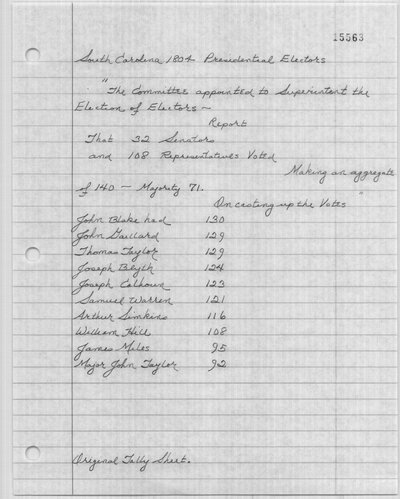 15563
South Carolina 1804 Presidential Electors
"The Committee appointed to Superintent the
Election of Electors ~
Report
That 32 Senators
and 108 Representatives Voted
Making an aggregate
of 140 — Majority 71.
On casting up the Votes "
John Blake had 130
John Gaillard 129
Thomas Taylor 129
Joseph Blyth 124
Joseph Calhoun 123
Samuel Warren 121
Arthur Simkins 116
William Hill 108
James Miles 95
Major John Taylor 92
Original Tally Sheet.